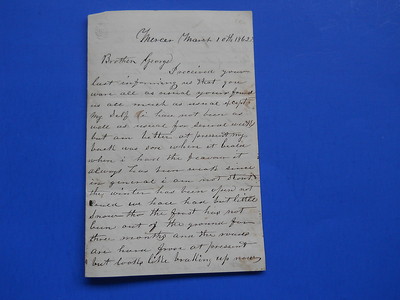 Mercer March 10th 1862
Brother George
I received your
last informing us that you
ware all as usual yours found
us all much as usual except
My Self i have not been as
well as usual for several weeks
but am better at present my
back was sore where it
when i had the it
always has been weak since
in general i am not
the winter has been open not
cold we have had but little
Snow tho the frost has not
been out of the ground for
three months and the roads
are hard froze at present
but looks like breaking up now